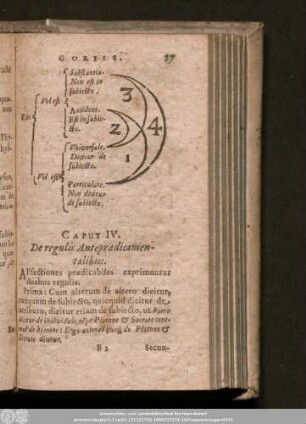 CORPIS. 27
Substantia.
Non est in
subiecto.
Vel est
Accidens.
Est in subie-
cto.
Ens
3
2
4
1
Vniversale.
Dicitur de
subiecto.
Vel est
Particulare.
Non dicitur
de subiecto.
CAPUT IV.
De regulis Antepraedicamen-
talibus.
Affectiones praedicabiles exprimuntur
duabus regulis.
Prima: Cum alterum de altero dicitur,
tanquam de subiecto, quicquid dicitur de at-
tributo, dicitur etiam de subiecto, ut homo
dicitur de individuis, de Platone & Socrate
de homine: Ergo animal quoque de Platone &
dicitur.
B 2 Secun-